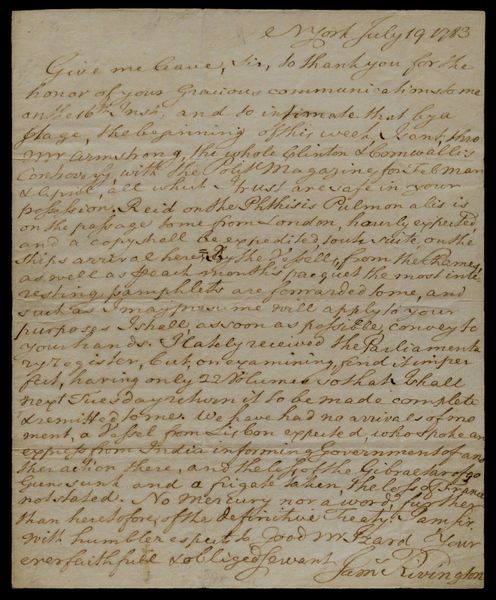 N York July 19 1783
Give me leave, Sir, to thank you for the
honor of your Gracious communications to me
on the 16th Inst, and to intimate that by a
Stage, the beginning of this week, I sent, thro
Mr Armstrong, the whole Clinton & Cornwallis
Contovery, with the Polit Magazing for Feb Mar
& April, all which I trust are safe in your
possession; Reid on the Phthisis Pulmonalis is
on the passage to me from London, hourly expected,
and a copy shall be expedited toute suite on the
ships arrival here; By the Vessell, from the Thames,
as well as each month's pacquet the most inte-
resting pamphlets are forwarded to me, and
such as I may presume will apply to your
purposes I shall, as soon as possible, convey to
your hands. I lately received the Parliamenta
ry register, but, on examining, find it imper
fect, having only 22 Volumes so that I shall
next Tuesday return it to be made complete
& remitted to me. We have had no arrivals of mo
ment, a Vessel from Lisbon expected, who spoke an
express from India informing Government of ano
ther action there, and the loss of the Gibraltar of 80
Guns sunk and a frigate taken, the loss of France
not stated. No Mercury nor a word further
than heretofore, of the definitive Treaty. I am, Sir,
with humble respect to Good Mr Izard Your
ever faithfull & obliged Servant
Jams Rivington